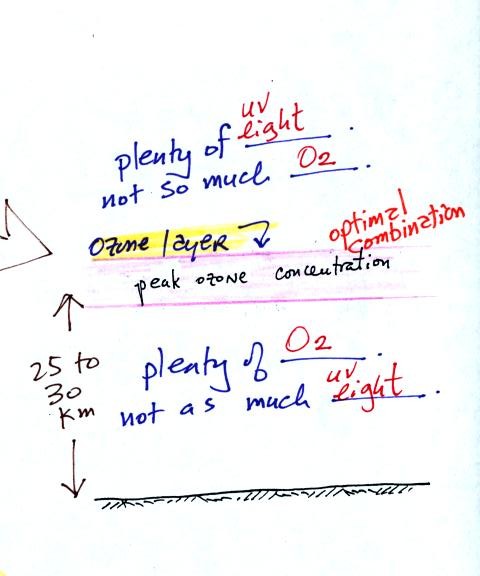 plenty of uv light .
not so much O2 .
ozone layer
optimal
combination
peak ozone concentration
25 to
30
km
plenty of O2 .
not as much uv light .